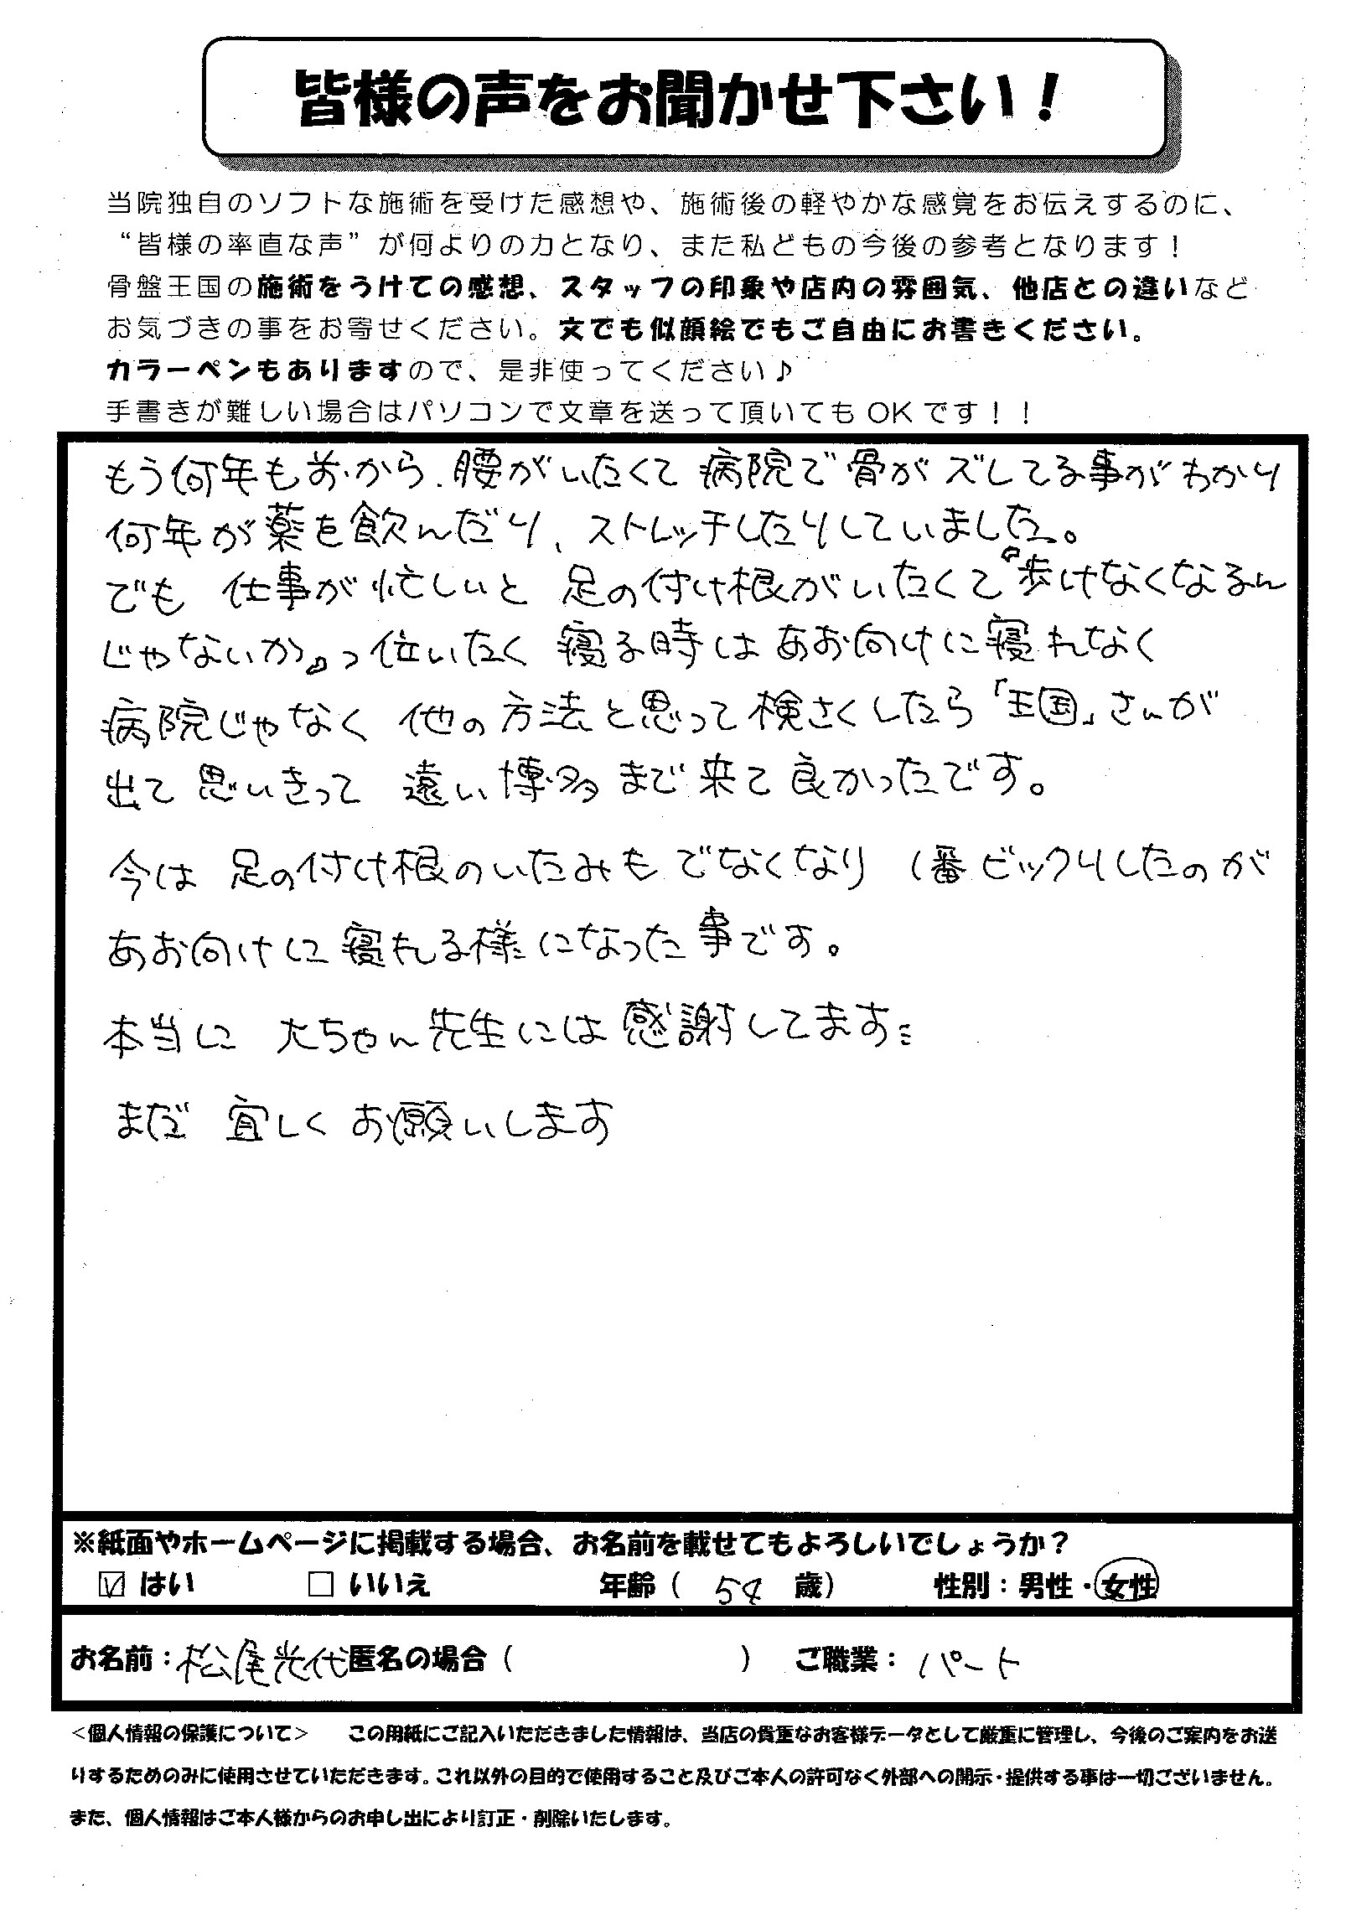 皆様の声をお聞かせ下さい！
当院独自のソフトな施術を受けた感想や、施術後の軽やかな感覚をお伝えするのに、
“皆様の率直な声”が何よりの力となり、また私どもの今後の参考となります！
骨盤王国の施術をうけての感想、スタッフの印象や店内の雰囲気、他店との違いなど
お気づきの事をお寄せください。文でも似顔絵でもご自由にお書きください。
カラーペンもありますので、是非使ってください♪
手書きが難しい場合はパソコンで文章を送って頂いてもOKです！！
もう何年も前から、腰がいたくて 病院で骨がズしてる事がわかり
何年が薬を飲んだり、ストレッチしたりしていました。
でも 仕事が忙しいと 足の付け根がいたくて『歩けなくなるん
じゃないか』っ位いたく 寝る時はあお向けに寝れなく
病院じゃなく 他の方法と思って検さくしたら「王国」さんが
出て 思いきって 遠い博多まで来て良かったです。
今は 足の付け根のいたみも でなくなり 1番ビックリしたのが
あお向けに寝れる様になった事です。
本当に 大ちゃん先生には感謝してます
まだ 宜しくお願いします
※紙面やホームページに掲載する場合、お名前を載せてもよろしいでしょうか？
☑はい □いいえ 年齢（ 54 歳） 性別：男性・女性
お名前：松尾光代 匿名の場合（ ） ご職業：パート
＜個人情報の保護について＞ この用紙にご記入いただきました情報は、当店の貴重なお客様データとして厳重に管理し、今後のご案内をお送
りするためのみに使用させていただきます。これ以外の目的で使用すること及びご本人の許可なく外部への開示・提供する事は一切ございません。
また、個人情報はご本人様からのお申し出により訂正・削除いたします。